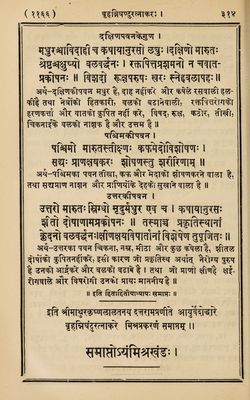 ( ११६६ ) बृहन्निघण्टुरत्नाकरः । ३१४
दक्षिणपवनकेगुण ।
मधुरश्चाविदाही च कषायानुरसो लघुः । दक्षिणो मारुतः
श्रेष्ठश्चक्षुष्यो बलवर्द्धनः । रक्तपित्तप्रशमनो न च वात-
प्रकोपनः ॥ विशदो रूक्षपरुषः खरः स्नेहबलापहः ॥
अर्थ-दक्षिणकीपवन मधुर है, दाह नहीं करे और कषेले रसवाली हलकी
है तथा नेत्रोंको हितकारी, बलको बढानेवाली, रक्तपित्तरोगको
हरणकर्त्ता और वातको कुपित नहीं करे, विषद; रूक्ष, कठोर, तीखी;
चिकनाईके बलको नाशक है और उत्तम है ॥
पश्चिमकीपवन ।
पश्चिमो मारुतस्तीक्ष्णः कफमेदोविशोषणः ।
सद्यः प्राणक्षयकरः शोषणस्तु शरीरिणाम् ॥
अर्थ-पश्चिमका पवन तीखा, कफ और मेदाको शीषणकरने वाला है,
तथा सद्यप्राण नाशन और प्राणियोंके देहको सुखाने वाला है ॥
उत्तरकीपवन ।
उत्तरो मारुतः स्निग्धो मृदुर्मधुर एव च । कषायानुरसः
शीतो दोषाणामप्रकोपनः ॥ तस्माच्च प्रकृतिस्थानां
क्लेदनो बलवर्द्धनः । क्षीणक्षयविषार्तानां विशेषेण तु पूजितः ॥
अर्थ-उत्तरका पवन चिकना, नम्र, मीठा और कुछ कषेला है, शीतल
दोषोंको कुपितनहींकरे; इसी कारण जो प्रकृतिस्थ अर्थात् नैरोग्य पुरुष
है उनको आर्द्रकरे और बलको बढावे है । तथा जो प्राणी क्षीणहै क्षई-
रोगवाले और विषरोगी उनको प्रायः माननीय है ॥
॥ इति हिताहितीयाध्यायः समाप्तः ॥
इति श्रीमाथुरकृष्णलालतनय दत्तरामप्रणीते आयुर्वेदोद्धारे
बृहन्निघण्टुरत्नाकरे मिश्रप्रकरणं समाप्तम् ।
समाप्तोऽयंमिश्रखंडः ।